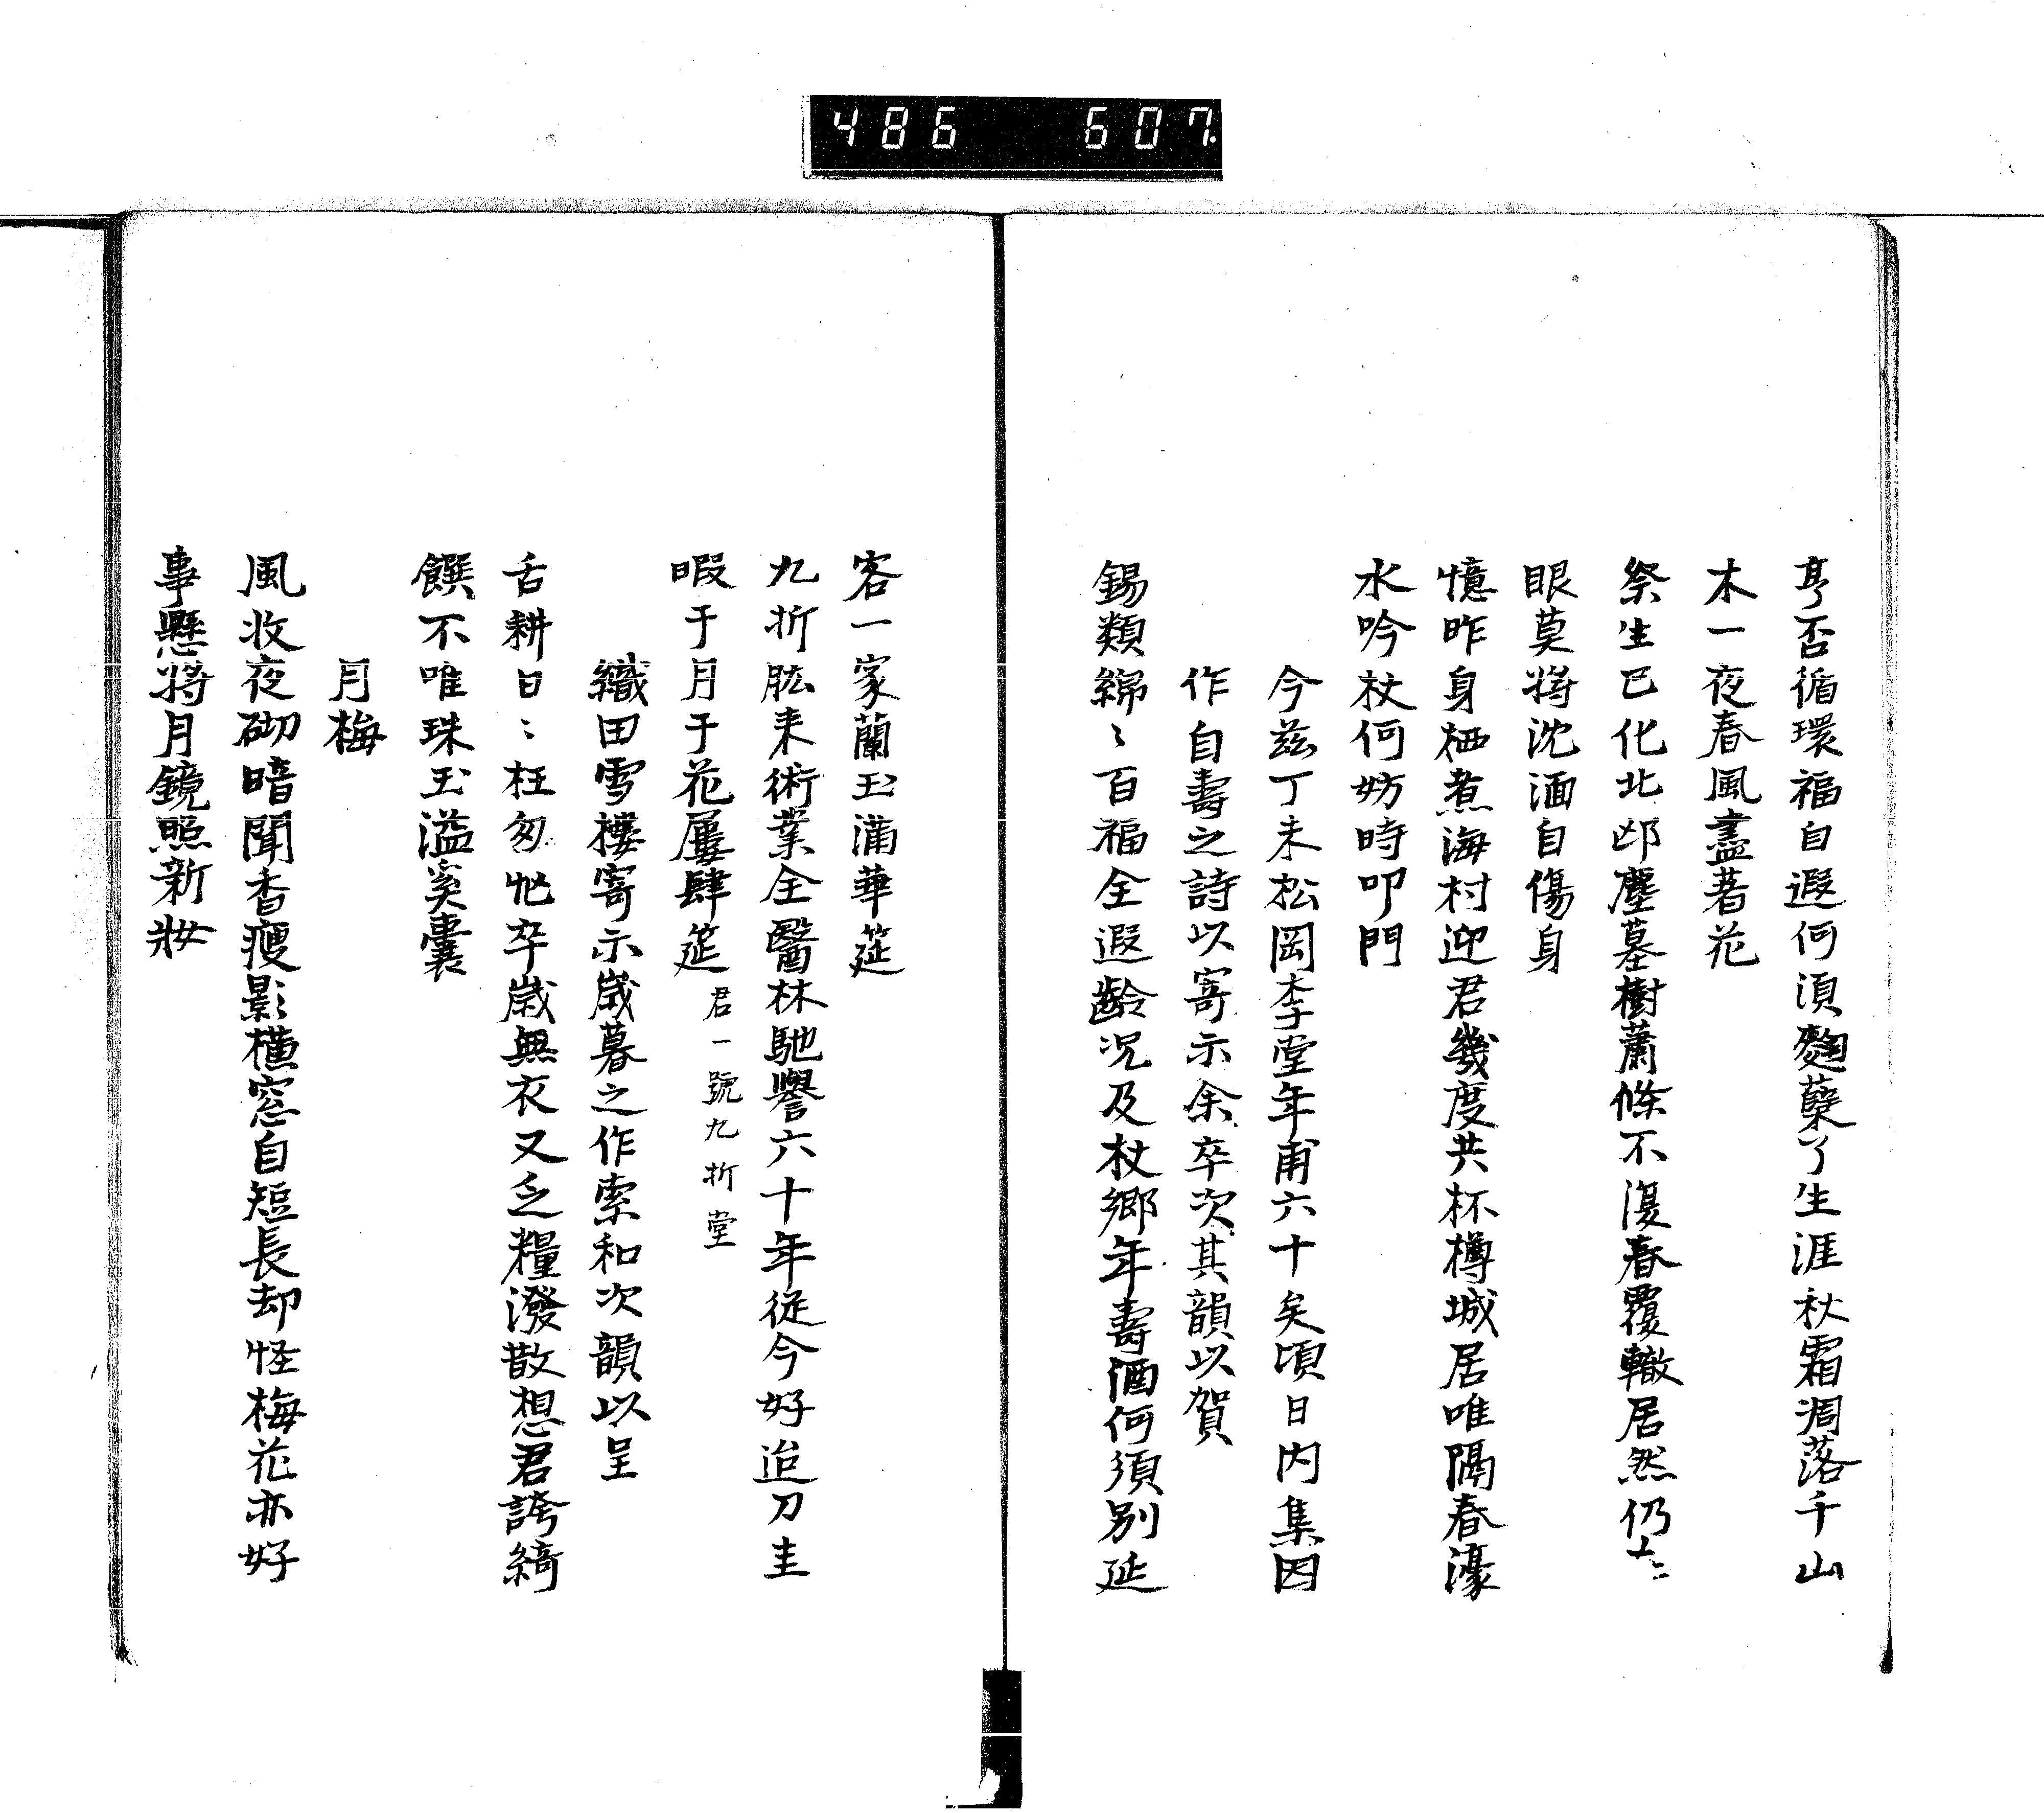 486 607
亨否循環福自遐何須麴蘖了生涯秋霜凋落千山
木一夜春風盡著花
祭生已化北邙塵墓樹蕭條不復春覆轍居然仍在
眼莫將沈湎自傷身
憶昨身栖煮海村迎君幾度共杯樽城居唯隔春濠
水吟杖何妨時叩門
今茲丁未松岡李堂年甫六十矣頃日内集因
作自壽之詩以寄示余卒次其韻以賀
錫類綿〻百福全遐齡况及杖鄉年壽酒何須別延
客一家蘭玉滿華筵
九折肱来術業全醫林馳譽六十年從今好迨刀圭
暇于月于花屢肆筵 君一號九折堂
織田雪樓寄示歳暮之作索和次韻以呈
舌耕日〻枉匆忙卒歳無衣又乏糧潑散想君誇綺
饌不唯珠玉溢奚囊
月梅
風收夜砌暗聞香瘦影橫窓自短長却怪梅花亦好
事懸將月鏡照新妝